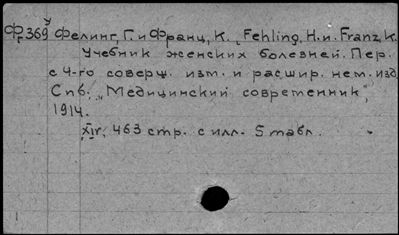 Ф369 Фелинг, Г. и Франц, К. Fehling, H. и. Franz, K.
Учебник женских болезней. Пер.
с 4-го соверш. изм. и расшир. нем. изд.
Спб. „Медицинский современник",
1914.
XIV, 463 стр. с илл. 5 табл.